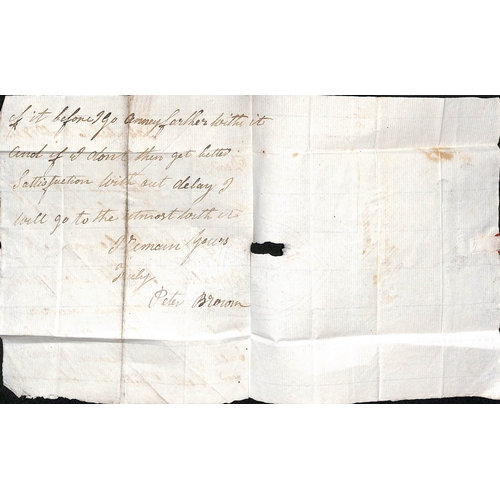 of it before I go anney farther with it
And if I dont then get better
Sattisfaction with out delay I
will go to the utmost with it
I remain yours
Truly
Peter Brown